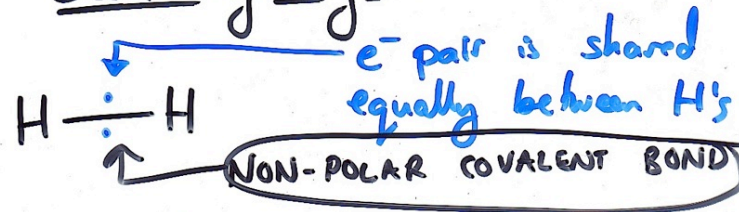 e⁻ pair is shared
equally between H's
H — H
NON-POLAR COVALENT BOND